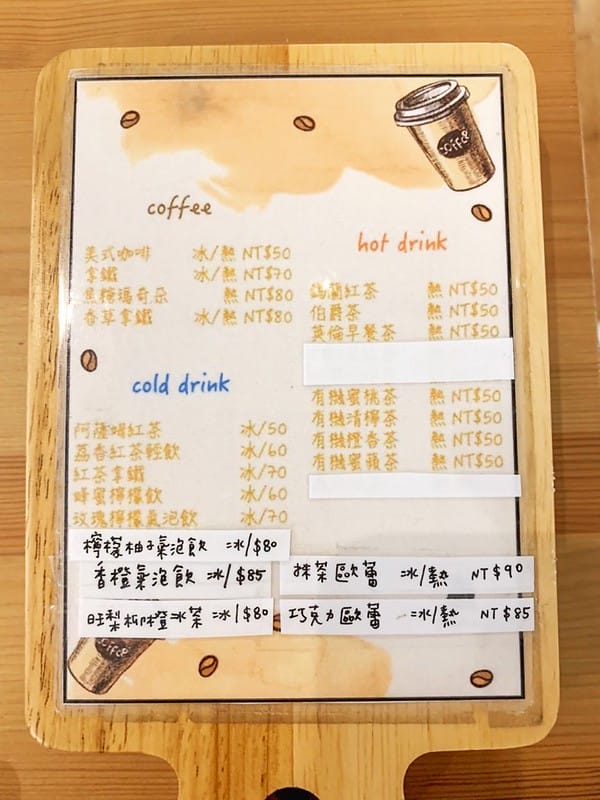 coffee
美式咖啡 冰/熱 NT$50
拿鐵 冰/熱 NT$70
焦糖瑪奇朵 熱 NT$80
香草拿鐵 冰/熱 NT$80
hot drink
錫蘭紅茶 熱 NT$50
伯爵茶 熱 NT$50
英倫早餐茶 熱 NT$50
有機蜜桃茶 熱 NT$50
有機清檸茶 熱 NT$50
有機橙香茶 熱 NT$50
有機蜜蘋茶 熱 NT$50
cold drink
阿薩姆紅茶 冰/50
荔香紅茶輕飲 冰/60
紅茶拿鐵 冰/70
蜂蜜檸檬飲 冰/60
玫瑰檸檬氣泡飲 冰/70
檸檬柚子氣泡飲 冰/$80
香橙氣泡飲 冰/$85
旺梨柳橙冰茶 冰/$80
抹茶歐蕾 冰/熱 NT$90
巧克力歐蕾 冰/熱 NT$85
coffee